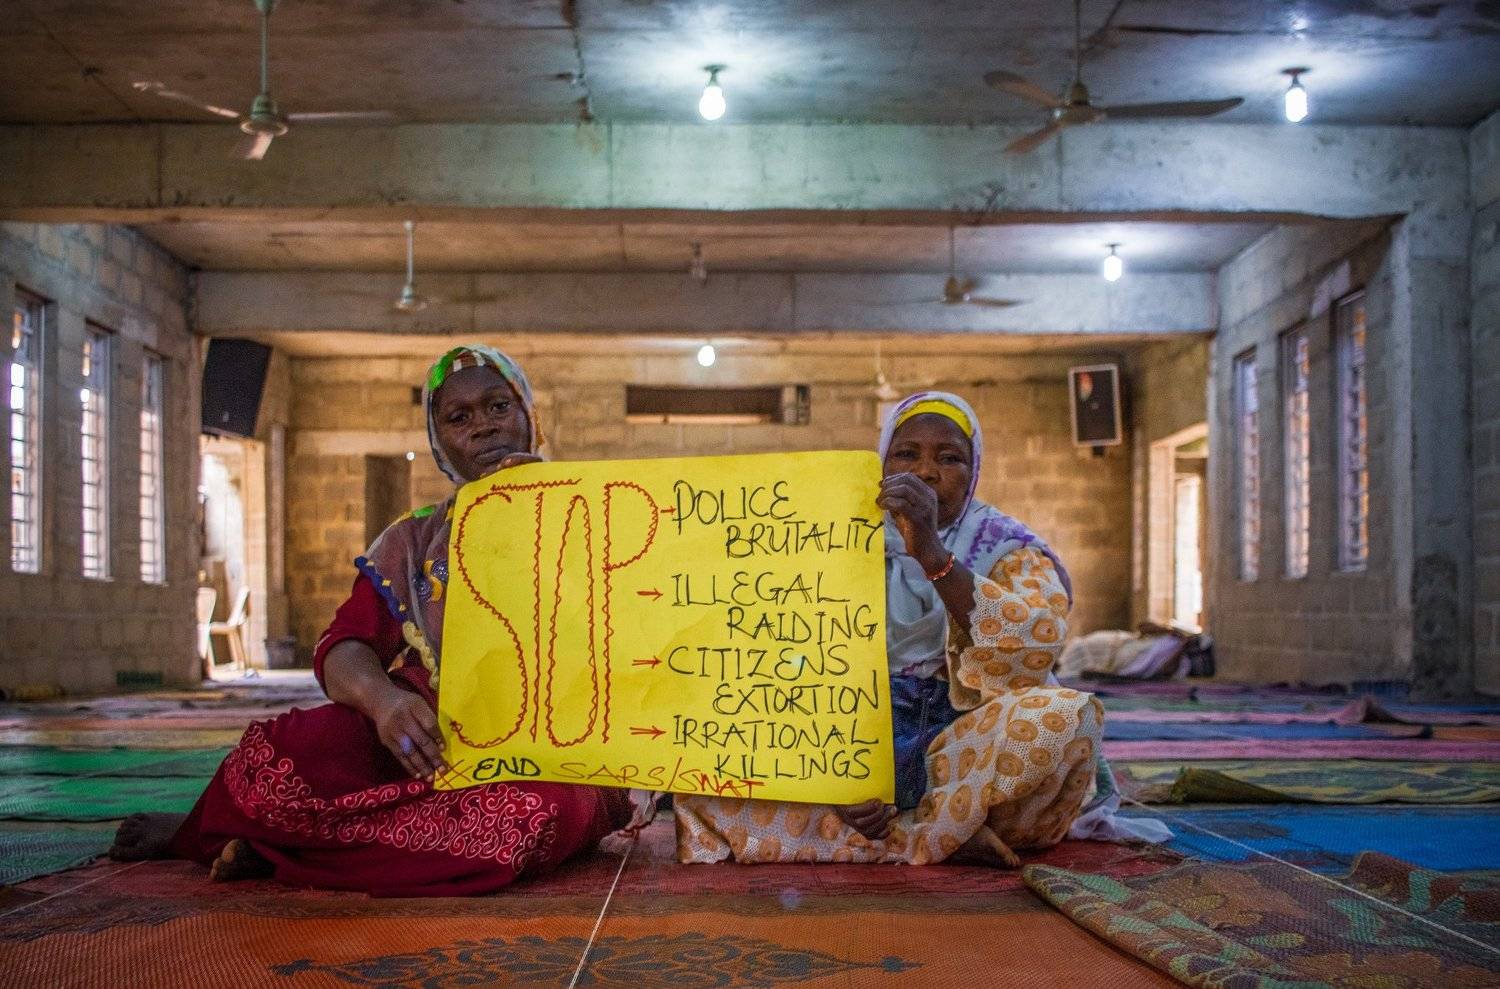 STOP
→ POLICE
BRUTALITY
→ ILLEGAL
RAIDING
→ CITIZENS
EXTORTION
→ IRRATIONAL
KILLINGS
END SARS/SWAT